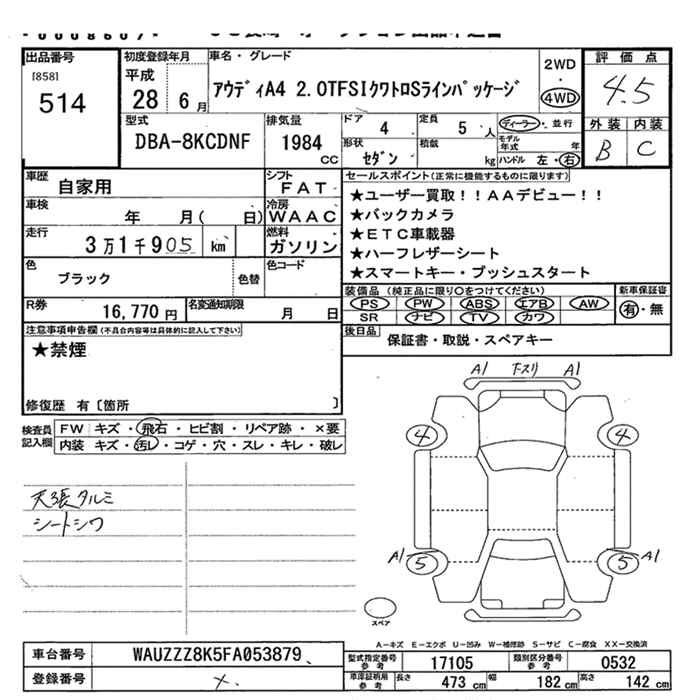 出品番号
[858]
514
初度登録年月
平成
28 6月
車名・グレード
アウディA4 2.0TFSIクワトロSラインパッケージ
2WD
・
4WD
評価点
4.5
外装 内装
B C
型式
DBA-8KCDNF
排気量
1984
cc
ドア 4
定員 5 人
形状 セダン
積載 kg
ディーラー・並行
モデル年式 年
ハンドル 左・右
車歴 自家用
シフト FAT
車検 年 月( 日)
冷房 WAAC
走行 3万1千905 km
燃料 ガソリン
色 ブラック
色替
色コード
R券 16,770円
名変通知期限 月 日
セールスポイント(正常に機能するものに限ります)
★ユーザー買取!!AAデビュー!!
★バックカメラ
★ETC車載器
★ハーフレザーシート
★スマートキー・プッシュスタート
装備品(純正品に限り○をつけてください)
PS PW ABS エアB AW
SR ナビ TV カワ
新車保証書
有・無
後日品 保証書・取説・スペアキー
注意事項申告欄(不具合内容等は具体的に記入して下さい)
★禁煙
修復歴 有〔箇所 〕
検査員記入欄
FW キズ・飛石・ヒビ割・リペア跡・×要
内装 キズ・汚レ・コゲ・穴・スレ・キレ・破レ
天張タルミ
シートシワ
A1 F-スリ A1
4 4
A1 5 5 A1
スペア
A-キズ E-エクボ U-凹み W-補修跡 S-サビ C-腐食 XX-交換済
車台番号 WAUZZZ8K5FA053879
登録番号
型式指定番号 参考 17105
類別区分番号 参考 0532
車庫証明用 参考
長さ 473 cm
幅 182 cm
高さ 142 cm